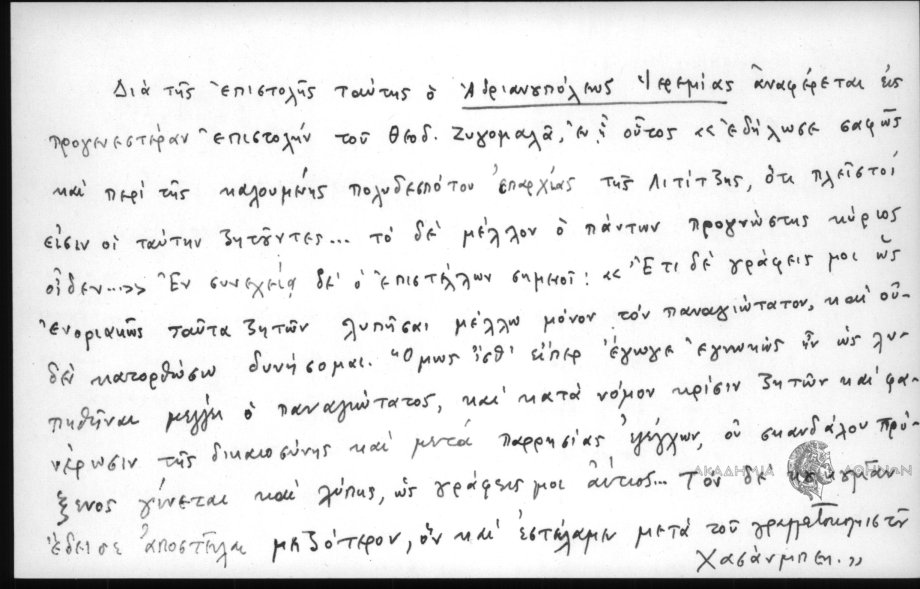 Διὰ τῆς ἐπιστολῆς ταύτης ὁ Ἀδριανουπόλεως Ἱερεμίας ἀναφέρεται εἰς
προγενεστέραν ἐπιστολὴν τοῦ Θεοδ. Ζυγομαλᾶ, ἐν ᾗ οὗτος «ἐδήλωσε σαφῶς
καὶ περὶ τῆς καλουμένης πολυδεσπότου ἐπαρχίας τῆς Λιτίτζης, ὅτι πλεῖστοί
εἰσιν οἱ ταύτην ζητοῦντες... τὸ δὲ μέλλον ὁ πάντων προγνώστης κύριος
οἶδεν...» Ἐν συνεχείᾳ δὲ ὁ ἐπιστέλλων σημειοῖ: «Ἔτι δὲ γράφεις μοι ὡς
ἐνοριακῶς ταῦτα ζητῶν λυπῆσαι μέλλω μόνον τὸν παναγιώτατον, καὶ οὐ-
δὲν κατορθώσω δυνήσομαι. Ὅμως ἴσθι εἴπερ ἔγωγε ἐγνωκὼς ἦν ὡς λυ-
πηθῆναι μέλλῃ ὁ παναγιώτατος, καὶ κατὰ νόμον κρίσιν ζητῶν καὶ φα-
νέρωσιν τῆς δικαιοσύνης καὶ μετὰ παρρησίας ἐλέγχων, οὐ σκανδάλου πρό-
ξενος γίνεται καὶ λύπης, ὡς γράφεις μοι αἴτιος... Τὸν δὲ
ἔδεισε ἀποστεῖλαι μειζότερον, ὃν καὶ ἐστείλαμεν μετὰ τοῦ
Χασάνμπεη.»
ΑΚΑΔΗΜΙΑ ΑΘΗΝΩΝ